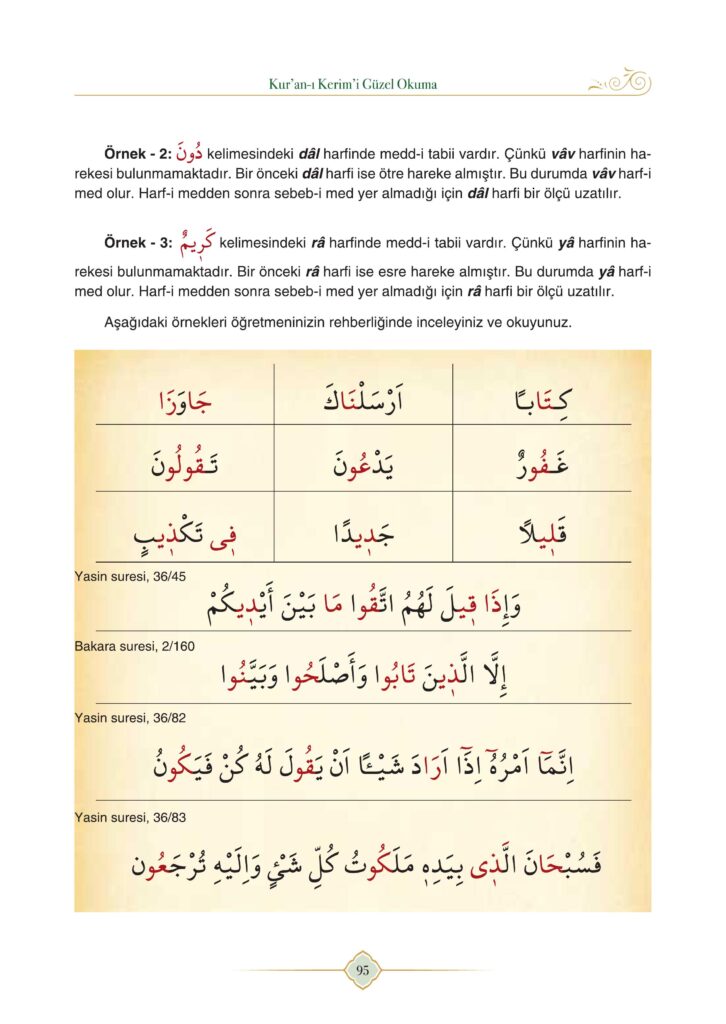 Kur’an-ı Kerim’i Güzel Okuma
Örnek - 2: دُونَ kelimesindeki dâl harfinde medd-i tabii vardır. Çünkü vâv harfinin ha-
rekesi bulunmamaktadır. Bir önceki dâl harfi ise ötre hareke almıştır. Bu durumda vâv harf-i
med olur. Harf-i medden sonra sebeb-i med yer almadığı için dâl harfi bir ölçü uzatılır.
Örnek - 3: كَر۪يمٌ kelimesindeki râ harfinde medd-i tabii vardır. Çünkü yâ harfinin ha-
rekesi bulunmamaktadır. Bir önceki râ harfi ise esre hareke almıştır. Bu durumda yâ harf-i
med olur. Harf-i medden sonra sebeb-i med yer almadığı için râ harfi bir ölçü uzatılır.
Aşağıdaki örnekleri öğretmeninizin rehberliğinde inceleyiniz ve okuyunuz.
كِتَابًا اَرْسَلْنَاكَ جَاوَزَا
غَفُورٌ يَدْعُونَ تَقُولُونَ
قَل۪يلًا جَد۪يدًا ف۪ى تَكْذ۪يبٍ
Yasin suresi, 36/45
وَإِذَا ق۪يلَ لَهُمُ اتَّقُوا مَا بَيْنَ أَيْد۪يكُمْ
Bakara suresi, 2/160
إِلَّا الَّذ۪ينَ تَابُوا وَأَصْلَحُوا وَبَيَّنُوا
Yasin suresi, 36/82
اِنَّمَٓا اَمْرُهُٓ اِذَٓا اَرَادَ شَيْـًٔا اَنْ يَقُولَ لَهُ كُنْ فَيَكُونُ
Yasin suresi, 36/83
فَسُبْحَانَ الَّذ۪ى بِيَدِه۪ مَلَكُوتُ كُلِّ شَىْءٍ وَاِلَيْهِ تُرْجَعُون
95